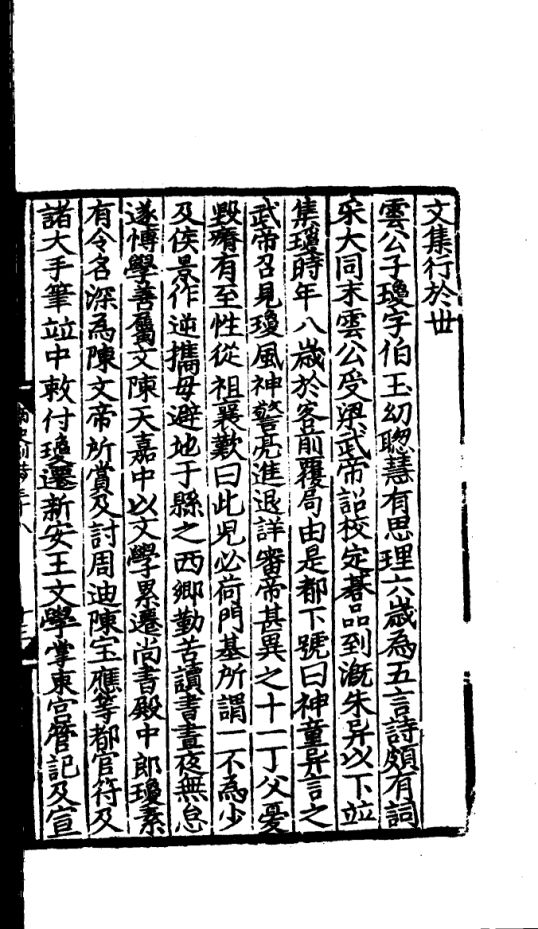 文集行於世
雲公子瓊字伯玉幼聰慧有思理六歲為五言詩頗有詞
采大同末雲公受梁武帝詔校定碁品到溉朱异以下並
集瓊時年八歲於客前覆局由是都下號曰神童异言之
武帝召見瓊風神警亮進退詳審帝甚異之十一丁父憂
毀瘠有至性從祖襄歎曰此兒必荷門基所謂一不為少
及侯景作逆攜母避地于縣之西鄉勤苦讀書晝夜無怠
遂博學善屬文陳天嘉中以文學累遷尚書殿中郎瓊素
有令名深為陳文帝所賞及討周迪陳宝應等都官符及
諸大手筆並中敕付瓊遷新安王文學掌東宮管記及宣